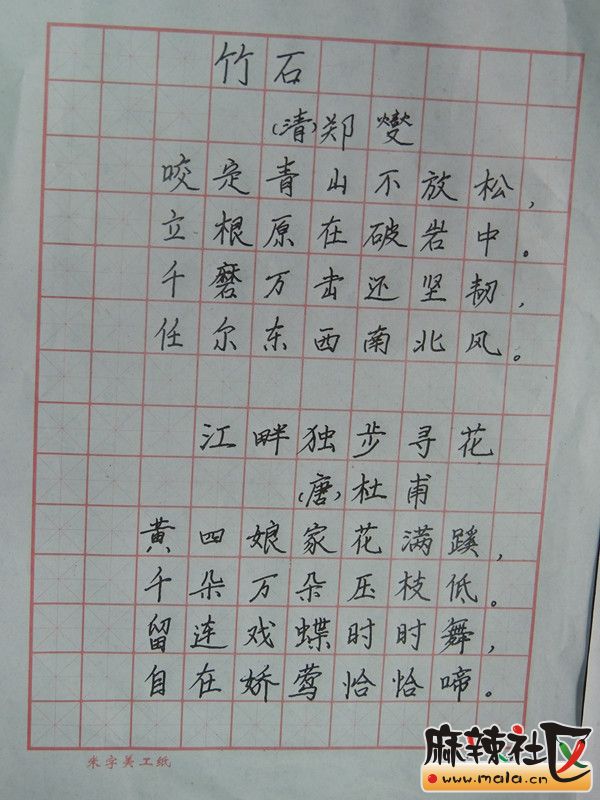 竹石
(清)郑燮
咬定青山不放松,
立根原在破岩中。
千磨万击还坚韧,
任尔东西南北风。
江畔独步寻花
(唐)杜甫
黄四娘家花满蹊,
千朵万朵压枝低。
留连戏蝶时时舞,
自在娇莺恰恰啼。
朱字美工纸
麻辣社区
www.mala.cn